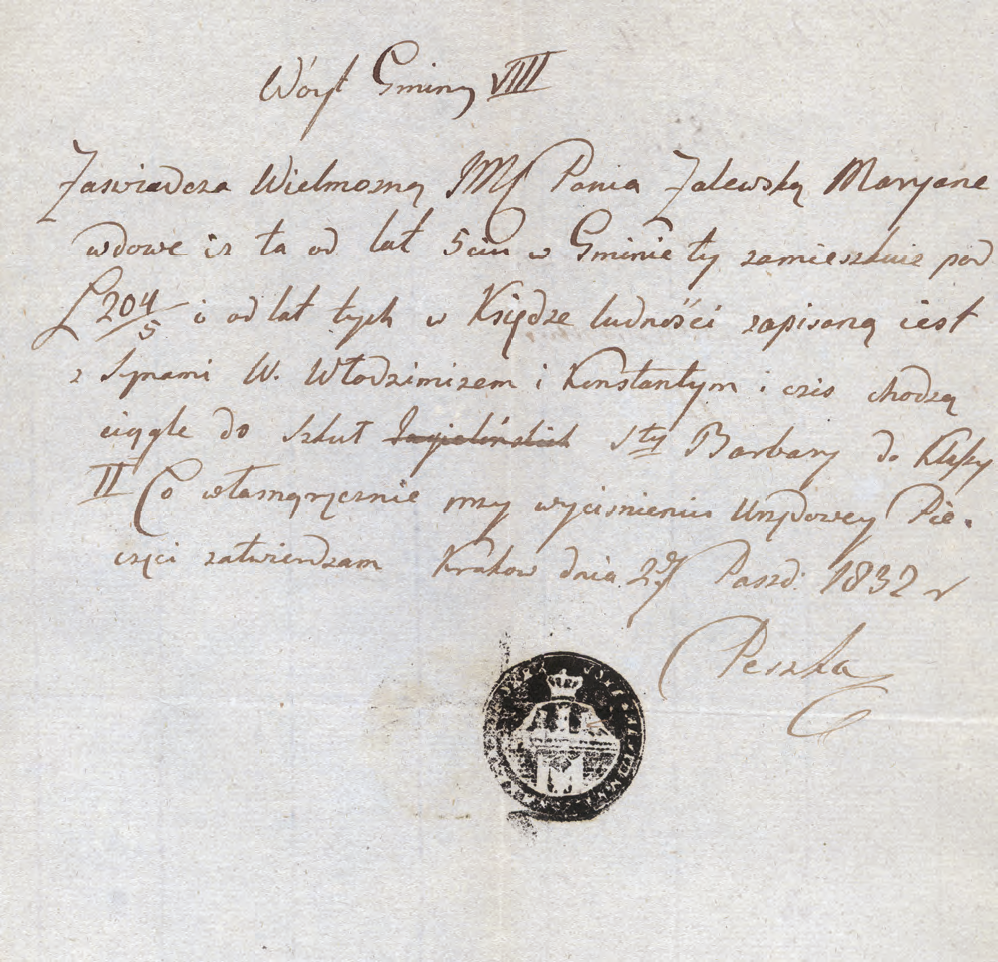 Wóyt Gminy VIII
Zaswiadcza Wielmozną JM Pania Zalewską Maryane
wdowe iz ta od lat 5ciu w Gminie ty zamieszkuie pod
L 204/5 i od lat tych w Księdze ludności zapisaną iest
z Synami W. Włodzimirzem i Konstantym i ozis chodzą
ciągle do Szkut Jagielińskich Sty Barbary do Klassy
II Co własnąręcznie przy wyciśnieniu Urzędowey Pie-
częci zatwierdzam Krakow dnia Pazd: 1832 r
Peszka